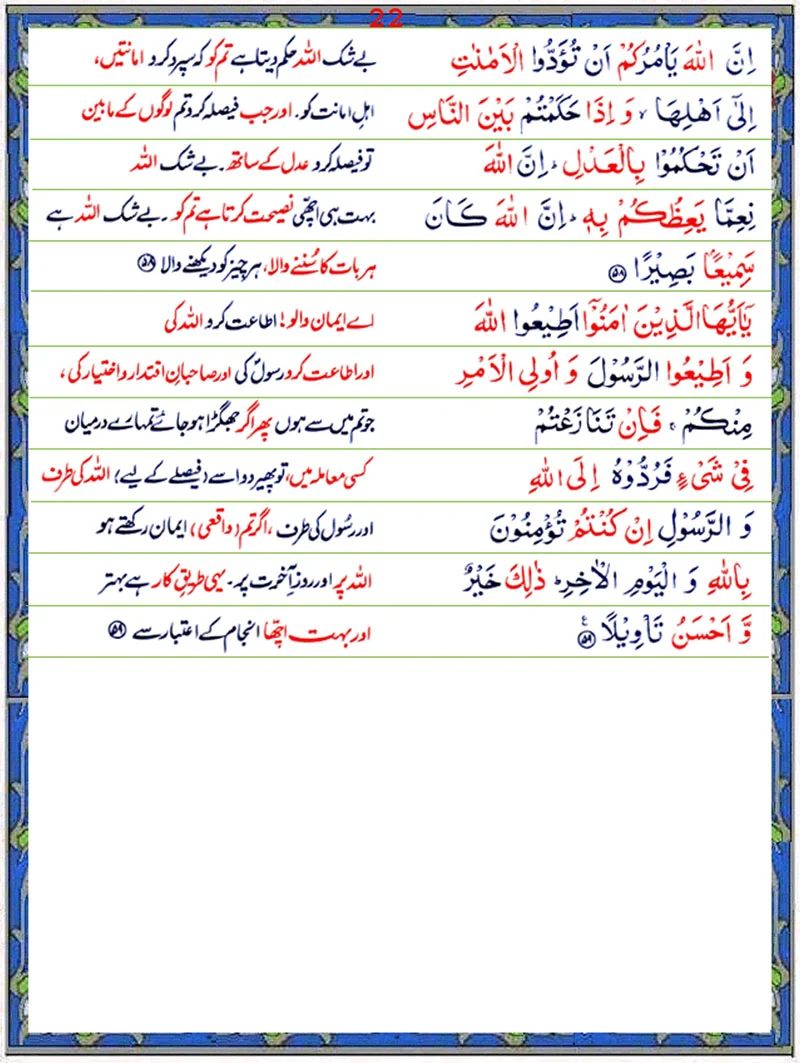 22
اِنَّ اللّٰهَ يَاْمُرُكُمْ اَنْ تُؤَدُّوا الْاَمٰنٰتِ بے شک اللہ حکم دیتا ہے تم کو کہ سپرد کرو امانتیں،
اِلٰٓى اَهْلِهَا ۙ وَ اِذَا حَكَمْتُمْ بَيْنَ النَّاسِ اہلِ امانت کو۔ اور جب فیصلہ کرو تم لوگوں کے مابین
اَنْ تَحْكُمُوْا بِالْعَدْلِ ؕ اِنَّ اللّٰهَ تو فیصلہ کرو عدل کے ساتھ۔ بے شک اللہ
نِعِمَّا يَعِظُكُمْ بِهٖ ؕ اِنَّ اللّٰهَ كَانَ بہت ہی اچھی نصیحت کرتا ہے تم کو ۔ بے شک اللہ ہے
سَمِيْعًۢا بَصِيْرًا ۵۸ ہر بات کا سُننے والا، ہر چیز کو دیکھنے والا ۵۸
يٰۤاَيُّهَا الَّذِيْنَ اٰمَنُوْۤا اَطِيْعُوا اللّٰهَ اے ایمان والو! اطاعت کرو اللہ کی
وَ اَطِيْعُوا الرَّسُوْلَ وَ اُولِى الْاَمْرِ اور اطاعت کرو رسولؐ کی اور صاحبانِ اقتدار و اختیار کی ،
مِنْكُمْ ۚ فَاِنْ تَنَازَعْتُمْ جو تم میں سے ہوں پھر اگر جھگڑا ہو جائے تمہارے درمیان
فِىْ شَىْءٍ فَرُدُّوْهُ اِلَى اللّٰهِ کسی معاملہ میں، تو پھیر دو اسے (فیصلے کے لیے) اللہ کی طرف
وَ الرَّسُوْلِ اِنْ كُنْتُمْ تُؤْمِنُوْنَ اور رسُول کی طرف ، اگر تم (واقعی) ایمان رکھتے ہو
بِاللّٰهِ وَ الْيَوْمِ الْاٰخِرِ ؕ ذٰلِكَ خَيْرٌ اللہ پر اور روزِ آخرت پر۔ یہی طریقِ کار ہے بہتر
وَّ اَحْسَنُ تَاْوِيْلًا ۵۹ ع اور بہت اچھا انجام کے اعتبار سے ۵۹